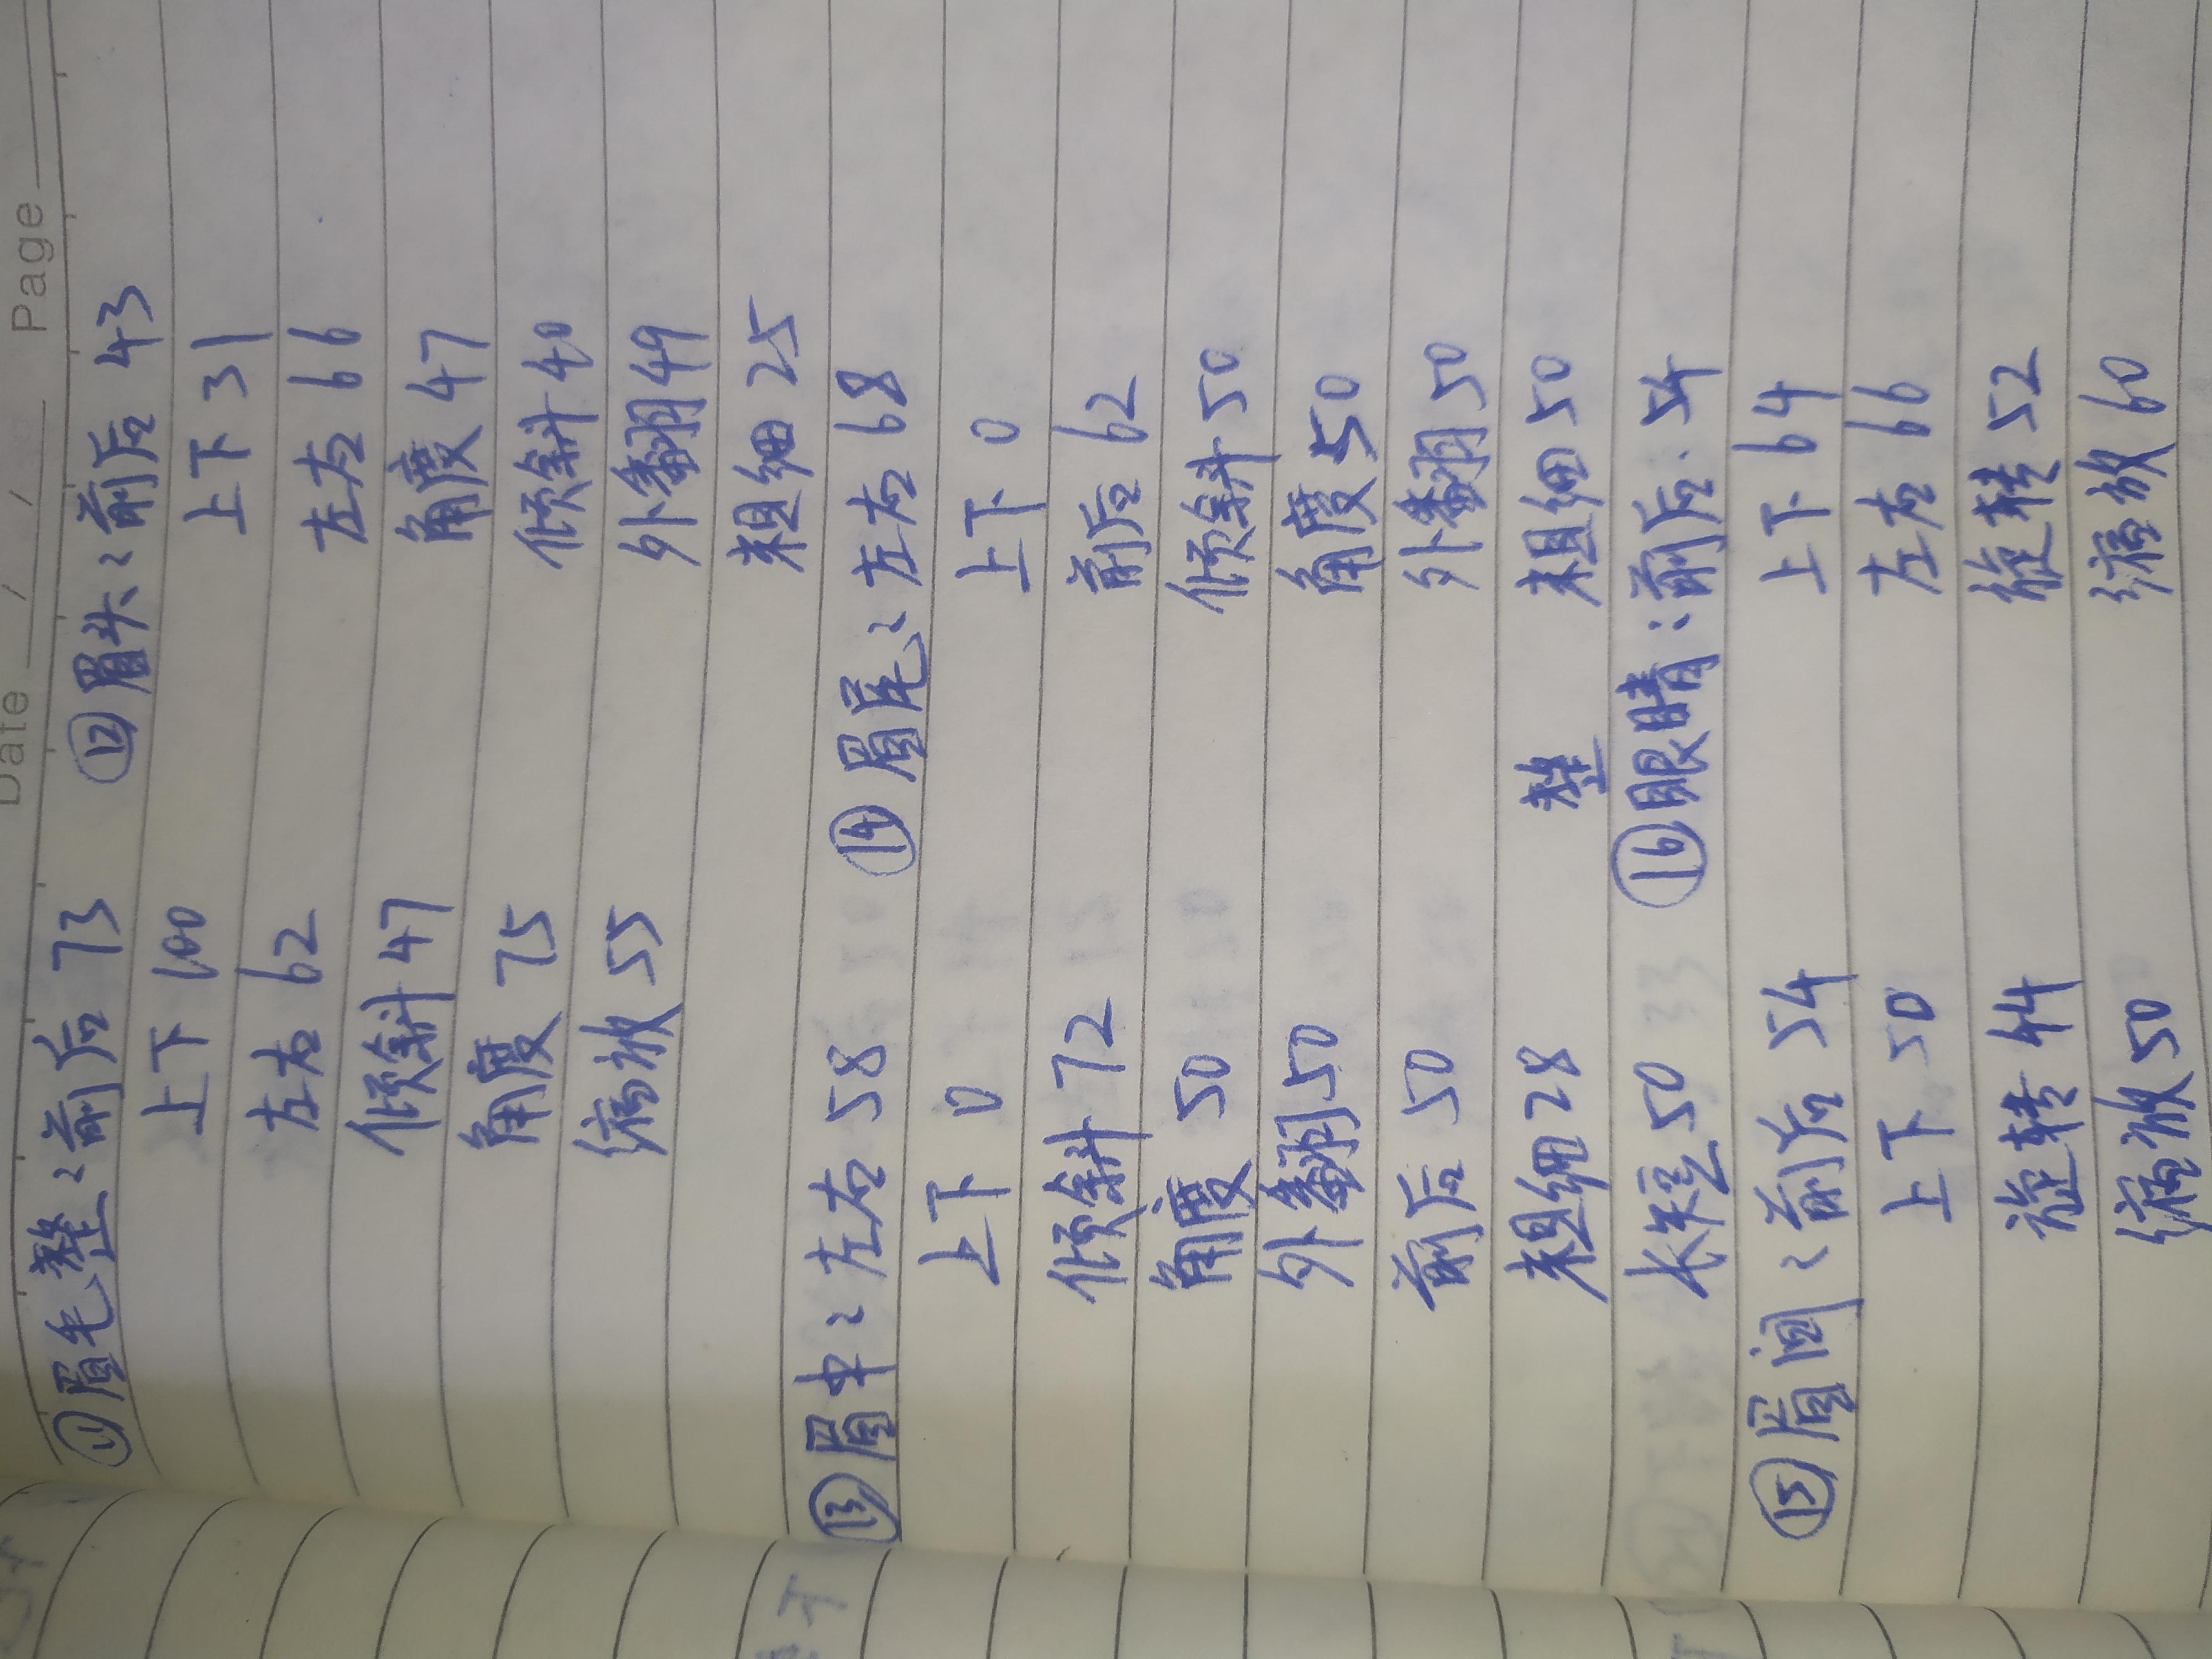 Date / / Page
⑪眉毛整:前后 73 ⑫眉头:前后 43
上下 100 上下 31
左右 62 左右 66
倾斜 47 角度 47
角度 75 倾斜 40
缩放 55 外翻 49
粗细 25
⑬眉中:左右 58 ⑭眉尾:左右 68
上下 0 上下 0
倾斜 72 前后 62
角度 50 倾斜 50
外翻 50 角度 50
前后 50 外翻 50
粗细 28 整 粗细 50
长短 50 ⑯眼睛:前后 54
⑮眉间:前后 54 上下 64
上下 50 左右 66
旋转 44 旋转 52
缩放 50 缩放 60